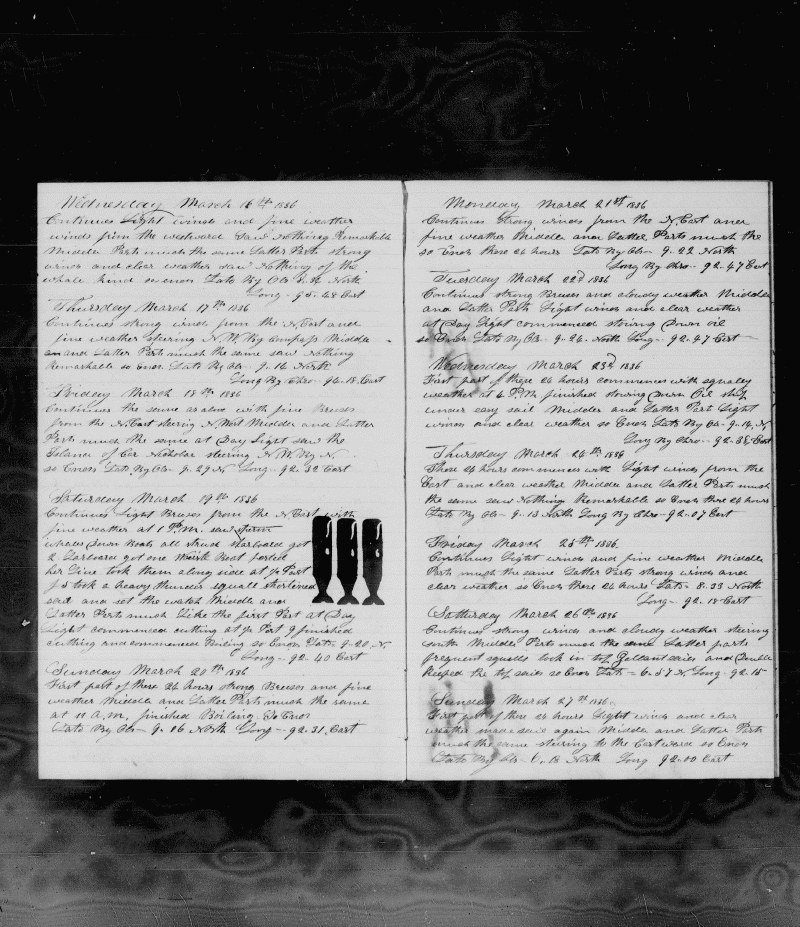 Wednesday March 16th 1836
Continues Light winds and fine weather
winds from the westward Saw Nothing Remarkable
Middle Parts much the same Latter Parts strong
winds and clear weather saw Nothing of the
whale kind so ends Lato By Ob North
Long 95.48 East
Thursday March 17th 1836
Continues strong winds from the N. East and
fine weather steering N.W. By Compass Middle
and Latter Parts much the same saw Nothing
Remarkable so Ends Lato By Ob- 9-16 North
Long By Chro- 94-18 East
Friday March 18th 1836
Continues the same as above with fine Breeses
from the N. East steering N West Middle and Latter
Parts much the same at Day Light saw the
Island of Car Nicobar steering N.W. By N.
so Ends Lato By Ob- 9-29 N Long- 92-32 East
Saturday March 19th 1836
Continues Light Breeses from the N. East with
fine weather at 1 P.M. saw sperm
whales Down Boats all struck starboard got
2 Larboard got one Boat parted
her Line took them along side at ½ Past
5 took a heavy thunder squall shortened
sail and set the watch Middle and
Latter Parts much Like the first Part at Day
Light commenced cutting at ½ Past 9 finished
cutting and commenced Boiling so Ends Lato- 9-20 N.
Long- 92-40 East
Sunday March 20th 1836
First part of these 24 hours strong Breeses and fine
weather Middle and Latter Parts much the same
at 11 A.M. finished Boiling So Ends
Lato By Ob- 9-16 North Long- 92-31 East
Monday March 21st 1836
Continues strong winds from the N. East and
fine weather Middle and Latter Parts much the
so Ends these 24 hours Lato By Ob- 9-22 North
Long By Chro- 92-47 East
Tuesday March 22d 1836
Continues strong Breeses and cloudy weather Middle
and Latter Parts Light winds and clear weather
at Day Light commenced stoing Down oil
so Ends Lato By Ob- 9-24 North Long- 92-47 East
Wednesday March 23d 1836
First part of these 24 hours commences with squally
weather at 4 P.M. finished stowing Down Oil ship
under easy sail Middle and Latter Part Light
winds and clear weather so Ends Lato By Ob- 9-14, N
Long By Chro- 92-38, East
Thursday March 24th 1836
These 24 hours commences with Light winds from the
East and clear weather Middle and Latter Parts much
the same saw Nothing Remarkable so Ends these 24 hours
Lato By Ob- 9-13 North Long By Chro- 92-07 East
Friday March 25th 1836
Continues Light winds and fine weather Middle
Parts much the same Latter Parts strong winds and
clear weather so Ends these 24 hours Lato- 8-33 North
Long- 92-18 East
Satturday March 26th 1836
Continues strong winds and cloudy weather steering
south Middle Parts much the same Latter parts
frequent squalls took in top Gallant sails and Double
Reefed the top sails so Ends Lato- 6-57 N Long- 92-15
Sunday March 27th 1836
First part of these 24 hours Light winds and clear
weather made sail again Middle and Latter Parts
much the same steering to the Eastward so Ends
Lato By Ob- 6.18 North Long 92-00 East